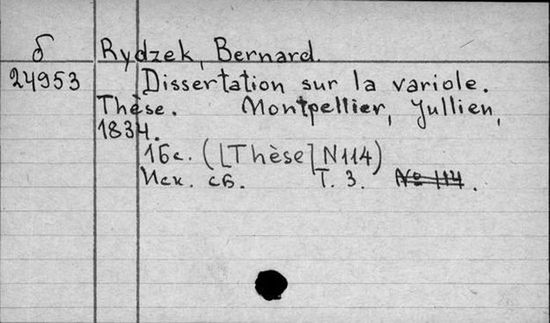 б Rydzek, Bernard.
24953 Dissertation sur la variole.
Thèse. Montpellier, Jullien,
1834.
16с. ([Thèse] N114)
Иск. сб. Т. 3. № 114.